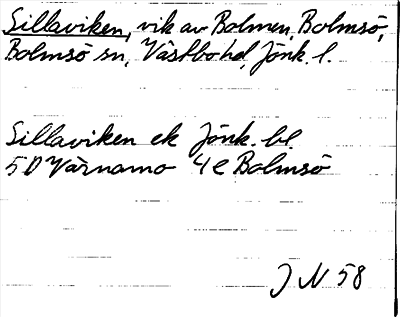 Sillaviken, vik av Bolmen, Bolmsö,
Bolmsö sn, Västbo hd, Jönk. l.
Sillaviken ek Jönk. bl.
5D Värnamo 4e Bolmsö
J N 58